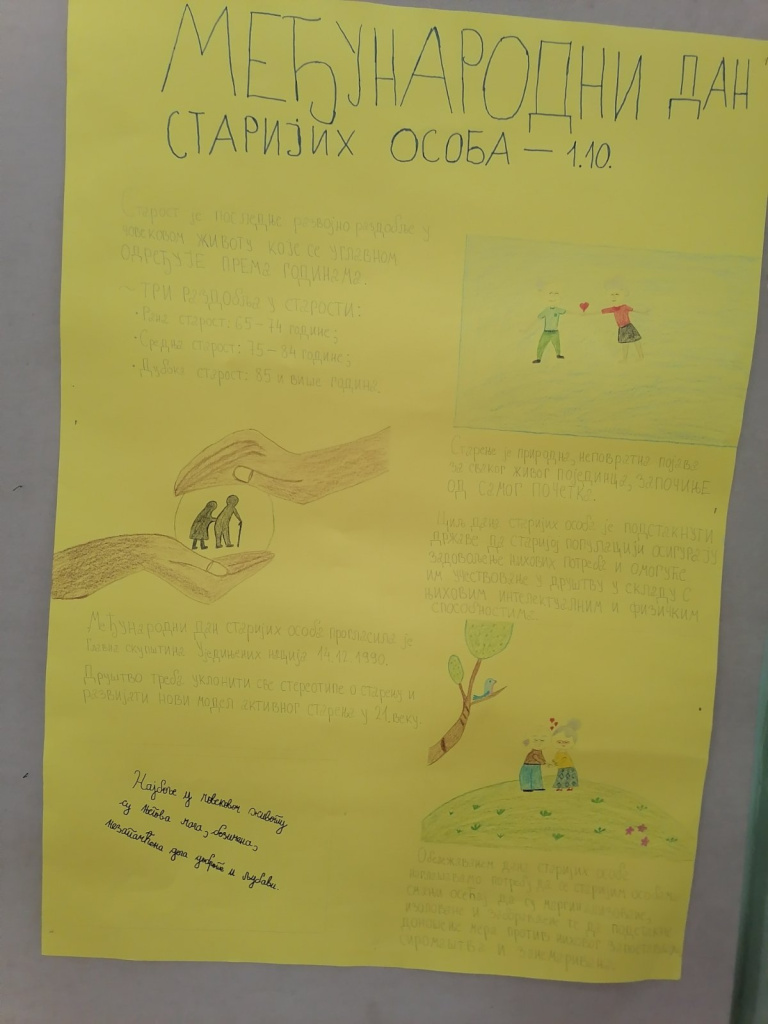 МЕЂУНАРОДНИ ДАН
СТАРИЈИХ ОСОБА – 1.10.
Старост је последње развојно раздобље у
човековом животу које се углавном
одређује према годинама.
~ ТРИ раздобља у старости:
• Рана старост: 65 – 74 године;
• Средња старост: 75 – 84 године;
• Дубока старост: 85 и више година.
Старење је природна, неповратна појава
за сваког живог појединца, започиње
од самог почетка.
Циљ дана старијих особа је подстакнути
државе да старијој популацији осигурају
задовољење њихових потреба и омогуће
им учествовање у друштву у складу с
њиховим интелектуалним и физичким
способностима.
Међународни дан старијих особа прогласила је
Главна скупштина Уједињених нација 14.12.1990.
Друштво треба уклонити све стереотипе о старењу и
развијати нови модел активног старења у 21. веку.
Најбоље у човековом животу
су његова мала, безимена,
незапамћена дела доброте и љубави.
Обележавањем дана старијих особа
потребу да се старијим особама
смањи осећај да су
и
доношење мера против њиховог
сиромаштва и занемаривања.